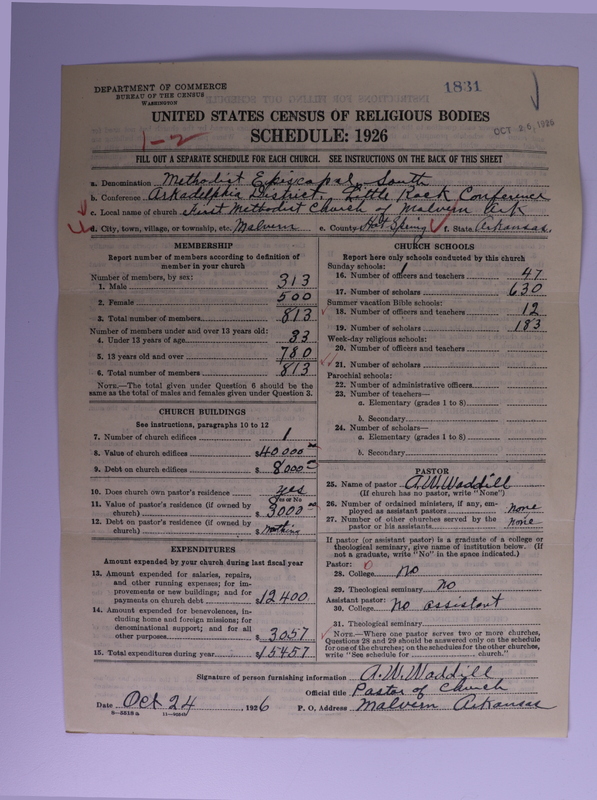 1831
DEPARTMENT OF COMMERCE
BUREAU OF THE CENSUS
WASHINGTON
UNITED STATES CENSUS OF RELIGIOUS BODIES
1-2
SCHEDULE: 1926
OCT 26, 1926
FILL OUT A SEPARATE SCHEDULE FOR EACH CHURCH. SEE INSTRUCTIONS ON THE BACK OF THIS SHEET
a. Denomination Methodist Episcopal South
b. Conference Arkadelphia District, Little Rock Conference
c. Local name of church First Methodist Church of Malvern Ark
d. City, town, village, or township, etc. Malvern e. County Hot Spring f. State Arkansas
MEMBERSHIP
Report number of members according to definition of
member in your church
Number of members, by sex:
1. Male 313
2. Female 500
3. Total number of members 813
Number of members under and over 13 years old:
4. Under 13 years of age 33
5. 13 years old and over 780
6. Total number of members 813
NOTE.—The total given under Question 6 should be the
same as the total of males and females given under Question 3.
CHURCH BUILDINGS
See instructions, paragraphs 10 to 12
7. Number of church edifices 1
8. Value of church edifices $40,000 00
9. Debt on church edifices $ 8000
10. Does church own pastor's residence yes
Yes or No
11. Value of pastor's residence (if owned by
church) $ 3000 00
12. Debt on pastor's residence (if owned by
church) $ nothing
EXPENDITURES
Amount expended by your church during last fiscal year
13. Amount expended for salaries, repairs,
and other running expenses; for im-
provements or new buildings; and for
payments on church debt $12400
14. Amount expended for benevolences, in-
cluding home and foreign missions; for
denominational support; and for all
other purposes $ 3057
15. Total expenditures during year $15457
CHURCH SCHOOLS
Report here only schools conducted by this church
Sunday schools:
16. Number of officers and teachers 47
17. Number of scholars 630
Summer vacation Bible schools:
18. Number of officers and teachers 12
19. Number of scholars 183
Week-day religious schools:
20. Number of officers and teachers
21. Number of scholars
Parochial schools:
22. Number of administrative officers
23. Number of teachers—
a. Elementary (grades 1 to 8)
b. Secondary
24. Number of scholars—
a. Elementary (grades 1 to 8)
b. Secondary
PASTOR
25. Name of pastor A. W. Waddill
(If church has no pastor, write "None")
26. Number of ordained ministers, if any, em-
ployed as assistant pastors none
27. Number of other churches served by the
pastor or his assistants none
If pastor (or assistant pastor) is a graduate of a college or
theological seminary, give name of institution below. (If
not a graduate, write "No" in the space indicated.)
Pastor: 0
28. College no
29. Theological seminary No
Assistant pastor:
30. College no assistant
31. Theological seminary
NOTE.—Where one pastor serves two or more churches,
Questions 28 and 29 should be answered only on the schedule
for one of the churches; on the schedules for the other churches,
write "See schedule for church."
Signature of person furnishing information A. W. Waddill
Official title Pastor of Church
Date Oct 24, 1926 P. O. Address Malvern Arkansas